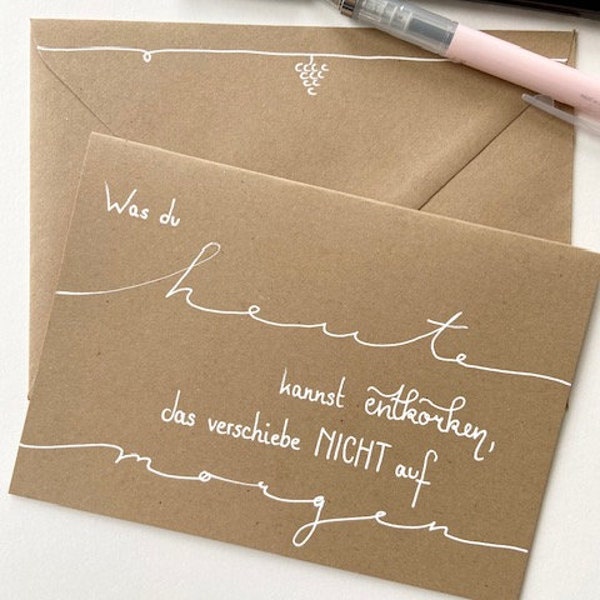 Was du
heute
kannst entkorken,
das verschiebe NICHT auf
morgen